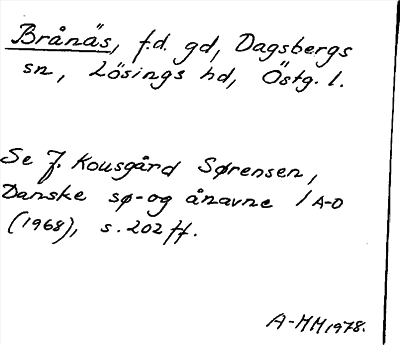 Brånäs, f.d. gd, Dagsbergs
sn, Lösings hd, Östg. l.
Se J. Kousgård Sørensen,
Danske sø- og ånavne 1 A-D
(1968), s. 202 ff.
A-MM 1978.